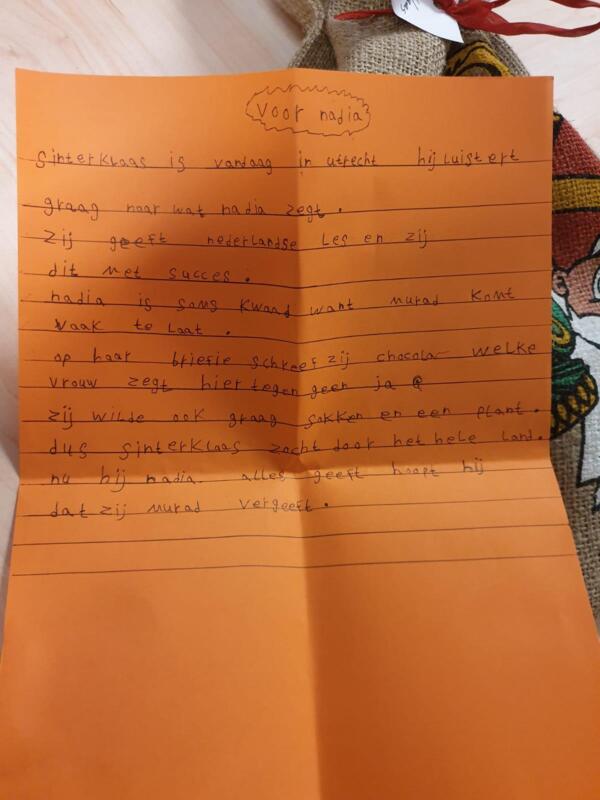 voor nadia
sinterklaas is vandaag in utrecht hij luistert
graag naar wat nadia zegt.
zij geeft nederlandse les en zij
dit met succes.
nadia is soms kwaad want murad komt
vaak te laat.
op haar briefje schreef zij chocola welke
vrouw zegt hier tegen geen ja
zij wilde ook graag sokken en een plant.
dus sinterklaas zocht door het hele land.
nu hij nadia alles geeft hoopt hij
dat zij murad vergeeft.